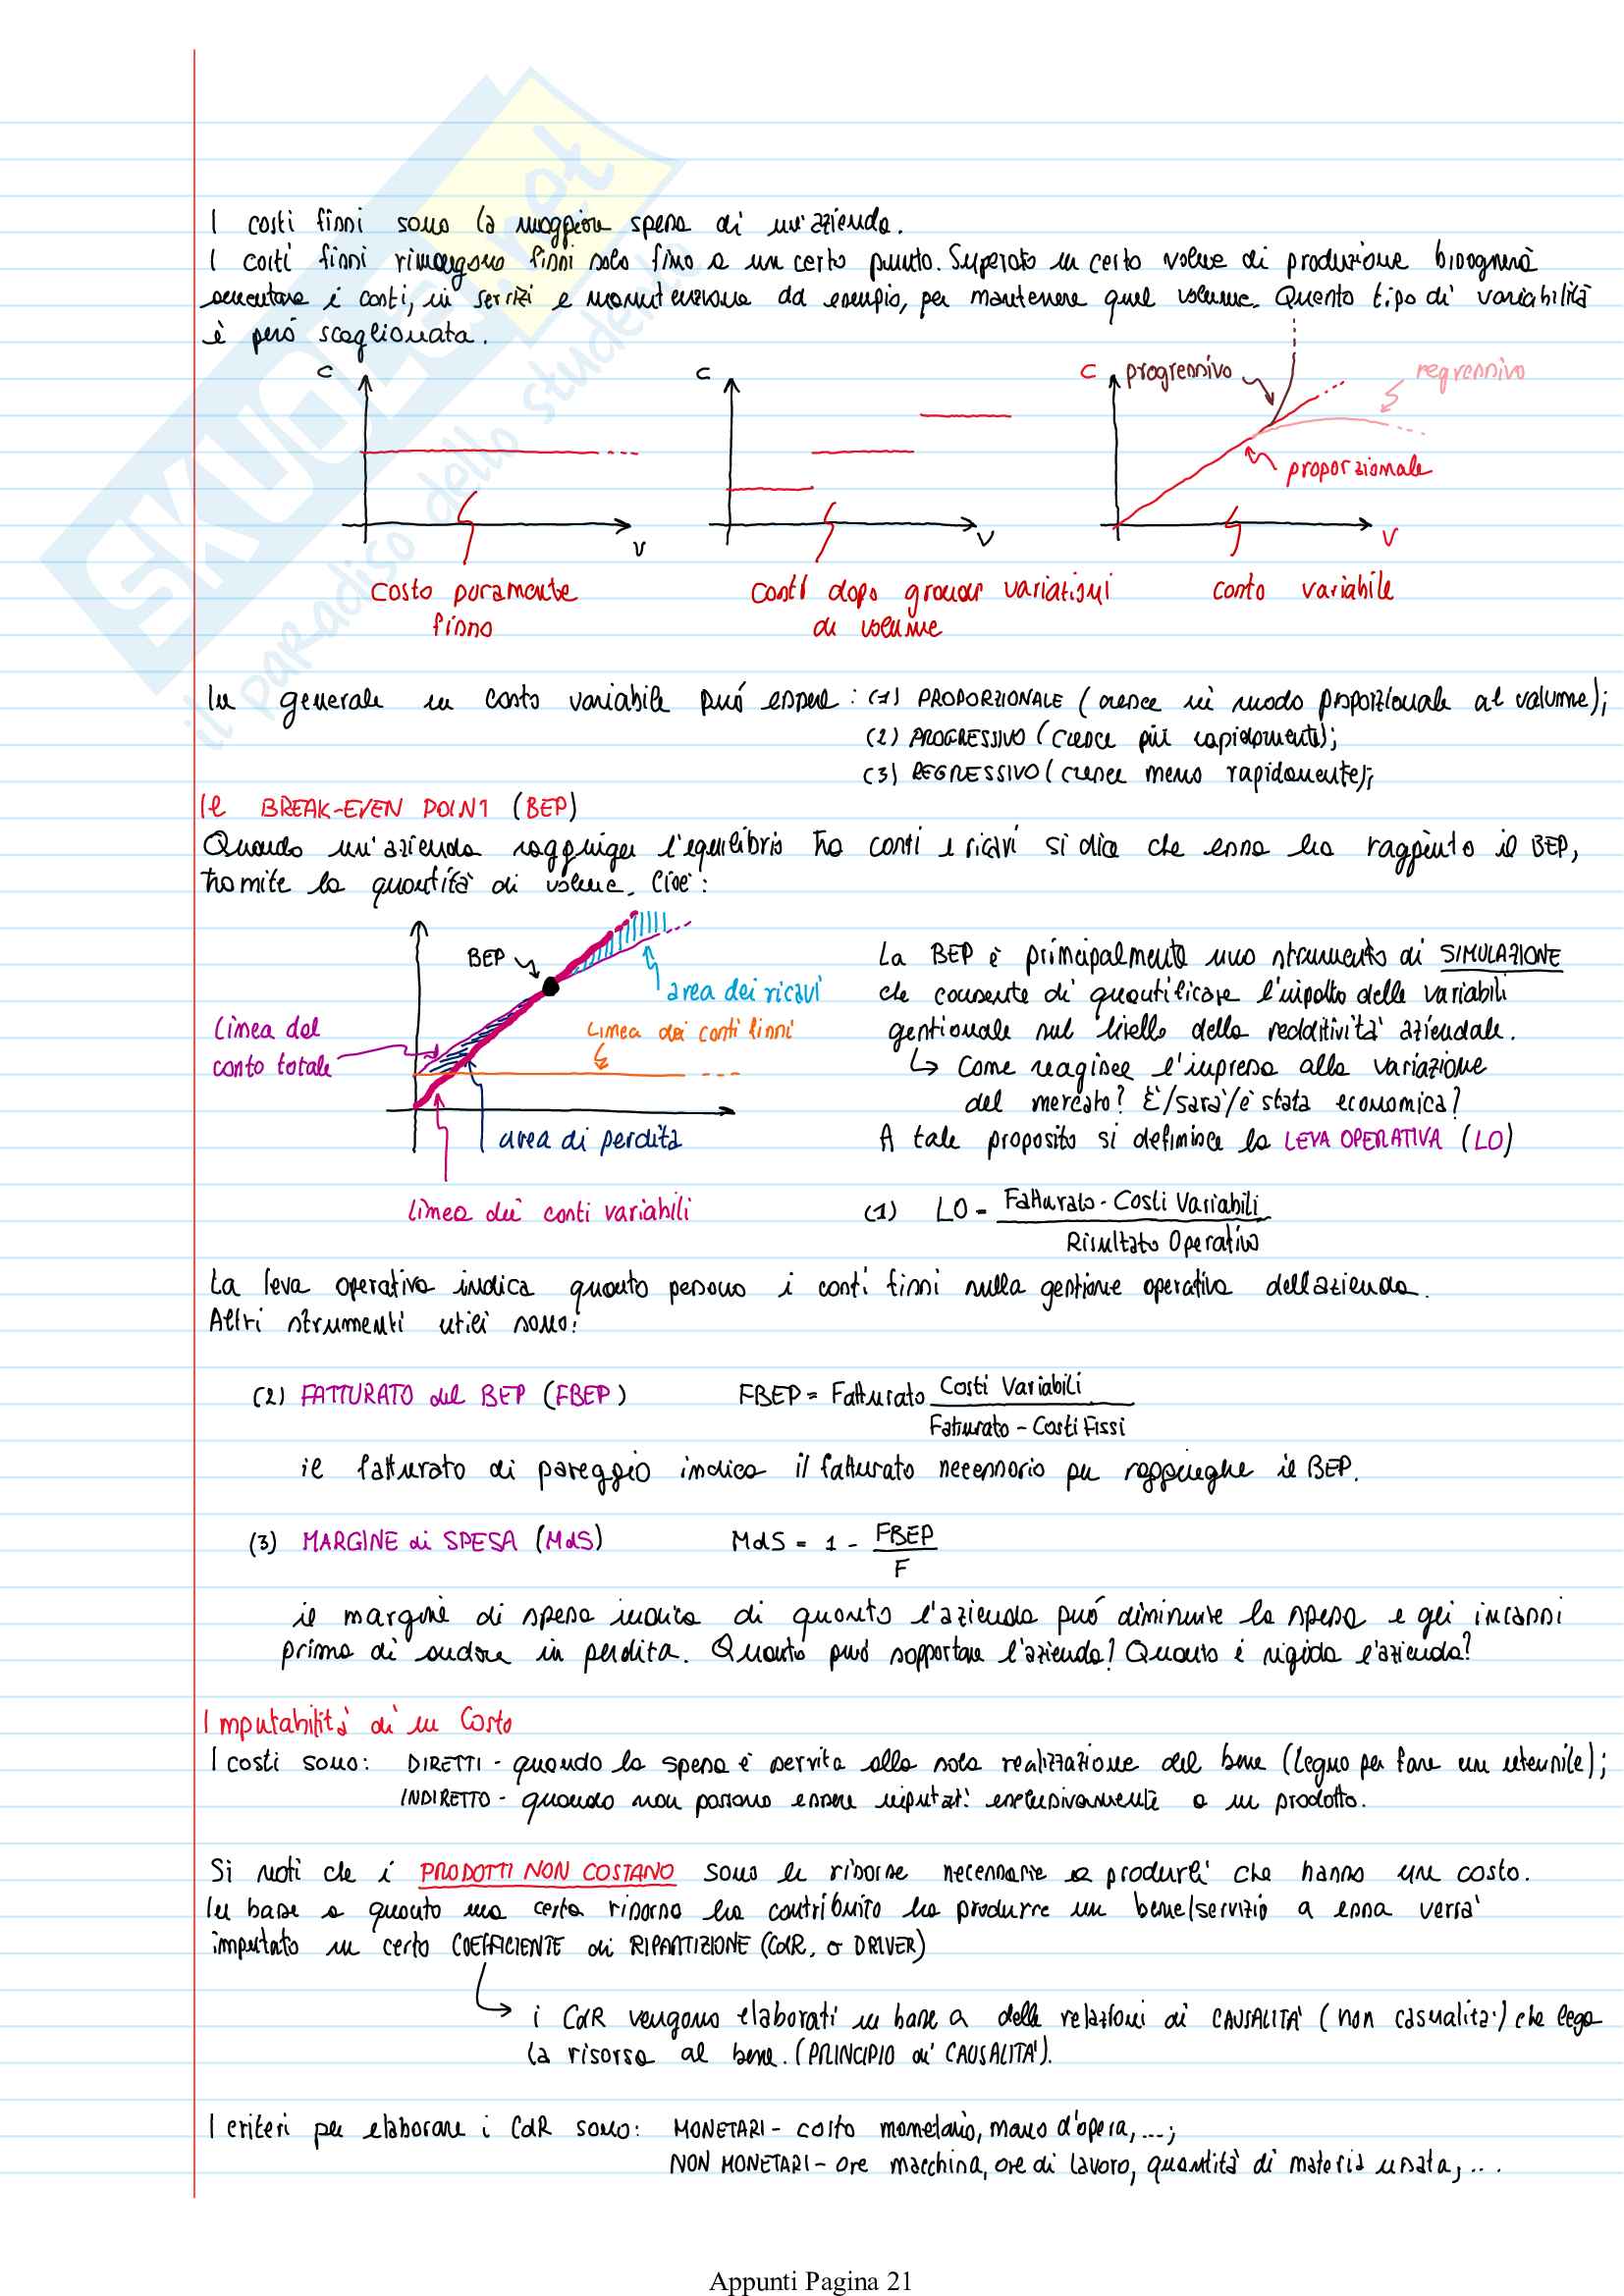 I costi fissi sono la maggiore spesa di un'azienda.
I costi fissi rimangono fissi solo fino a un certo punto. Superato un certo volue di produzione bisognerà
aumentare i costi, in servizi e manutenzione ad esempio, per mantenere quel volume. Questo tipo di variabilità
è però scaglionata.
C
C
C
progressivo
regressivo
proporzionale
V
V
V
Costo puramente
fisso
costi dopo grandi variazioni
di volume
costo variabile
In generale un costo variabile può essere: (1) PROPORZIONALE (cresce in modo proporzionale al volume);
(2) PROGRESSIVO (cresce più rapidamente);
(3) REGRESSIVO (cresce meno rapidamente);
Il BREAK-EVEN POINT (BEP)
Quando un'azienda raggiunge l'equilibrio tra costi e ricavi si dice che essa ha raggiunto il BEP,
tramite la quantità di volume. Cioè:
BEP
area dei ricavi
Linea dei costi fissi
Linea del
costo totale
area di perdita
linea dei costi variabili
La BEP è principalmente uno strumento di SIMULAZIONE
che consente di quantificare l'impatto delle variabili
gestionale sul livello della redditività aziendale.
↳ Come reagisce l'impresa alla variazione
del mercato? È/sarà/è stata economica?
A tale proposito si definisce la LEVA OPERATIVA (LO)
(1) LO = Fatturato - Costi Variabili
Risultato Operativo
La leva operativa indica quanto pesano i costi fissi sulla gestione operativa dell'azienda.
Altri strumenti utili sono:
(2) FATTURATO del BEP (FBEP) FBEP = Fatturato Costi Variabili
Fatturato - Costi Fissi
il fatturato di pareggio indica il fatturato necessario per raggiunghe il BEP.
(3) MARGINE di SPESA (MdS) MdS = 1 - FBEP
F
il margine di spesa indica di quanto l'azienda può diminuire la spesa e gli incassi
prima di andare in perdita. Quanto può sopportare l'azienda? Quanto è rigida l'azienda?
Imputabilità di un Costo
I costi sono: DIRETTI - quando la spesa è servita alla sola realizzazione del bene (legno per fare un utensile);
INDIRETTO - quando non possono essere imputati esclusivamente a un prodotto.
Si noti che i PRODOTTI NON COSTANO sono le risorse necessarie a produrli che hanno un costo.
In base a quanto una certa risorsa ha contribuito ha produrre un bene/servizio a essa verrà
imputato un certo COEFFICIENTE di RIPARTIZIONE (CdR, o DRIVER)
i CdR vengono elaborati in base a delle relazioni di CAUSALITA' (non casualita') che lega
la risorsa al bene. (PRINCIPIO di CAUSALITA').
I criteri per elaborare i CdR sono: MONETARI - costo monetario, mano d'opera, ...;
NON MONETARI - ore macchina, ore di lavoro, quantità di materia usata, ...
SKUOLA.net
il paradiso dello studente
Appunti Pagina 21